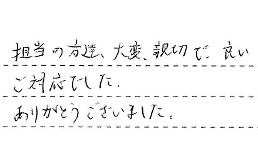 担当の方達、大変、親切で、良い
ご対応でした。
ありがとうございました。